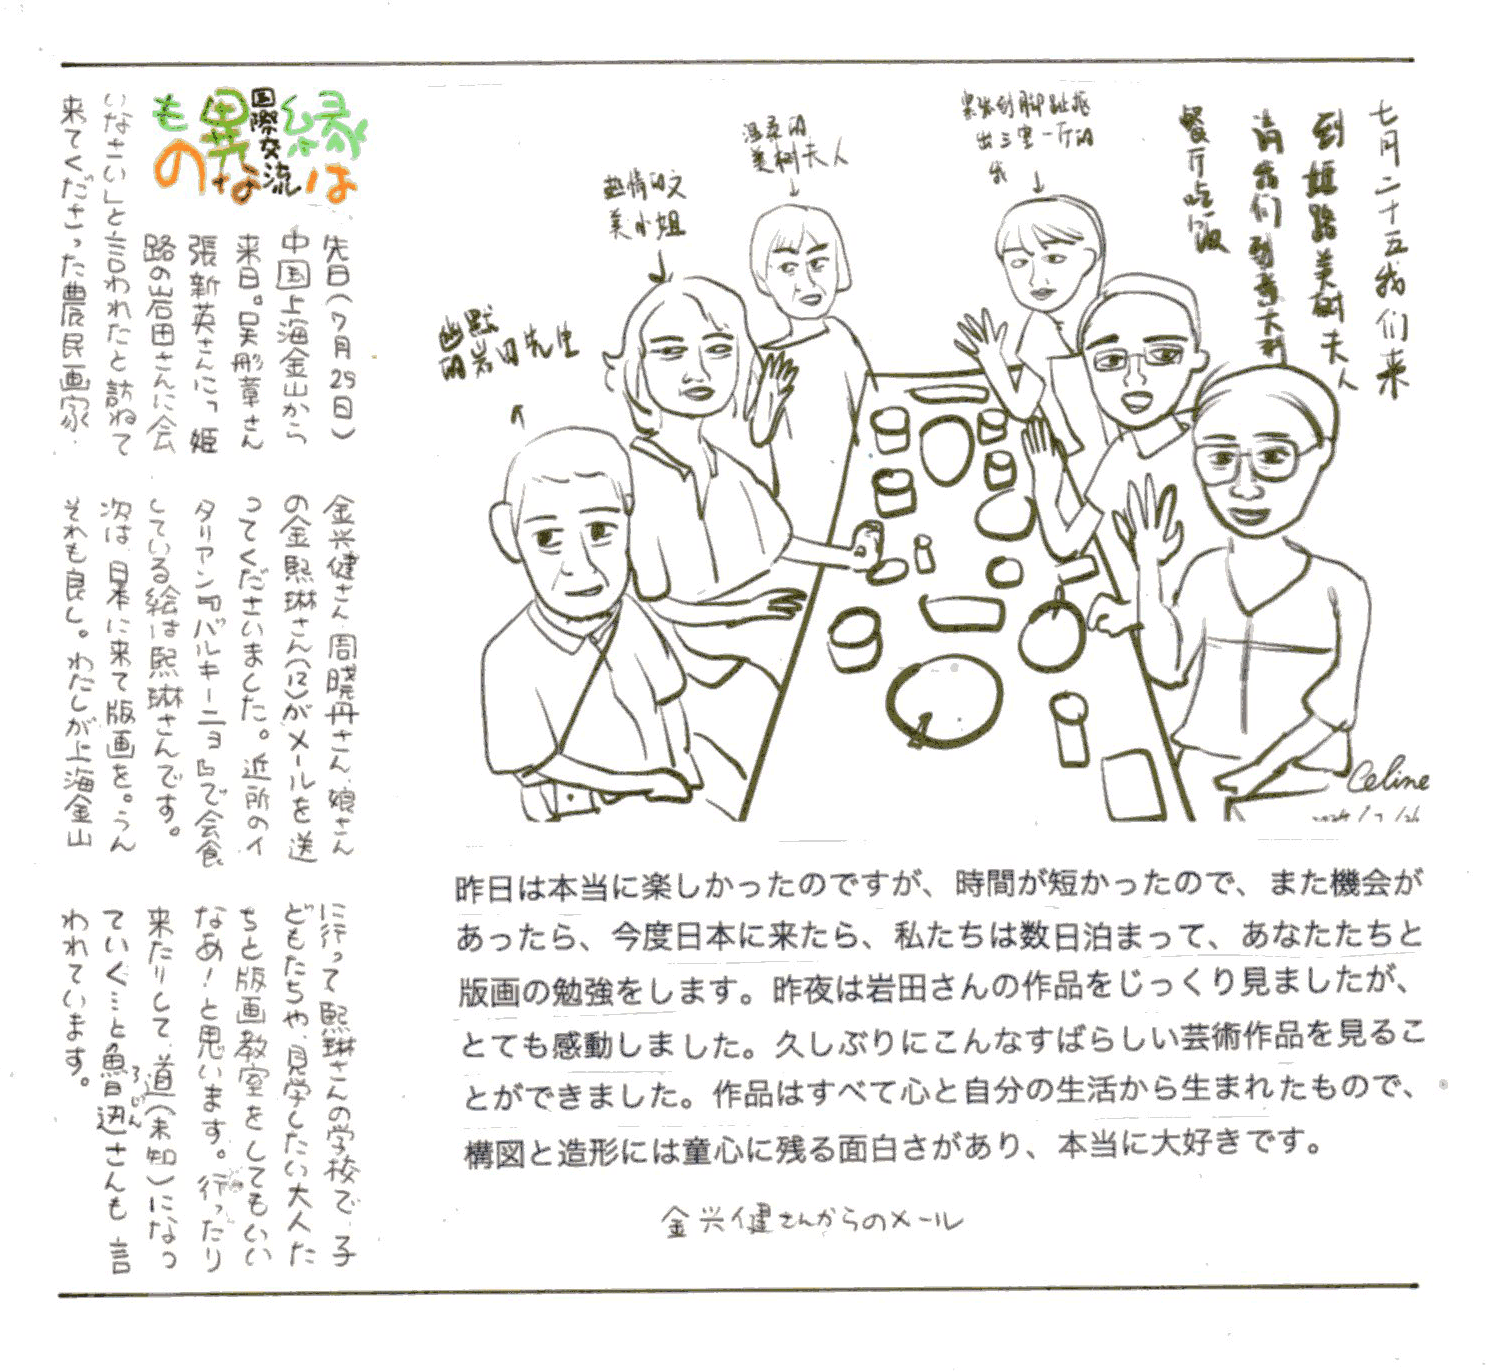 縁は
国際交流
異な
もの
先日(7月25日)
中国上海金山から
来日。呉彤章さん
張新英さんに「姫
路の岩田さんに会
いなさい」と言われたと訪ねて
来てくださった農民画家・
金兴健さん、周曉丹さん、娘さん
の金熙琳さん(12)がメールを送
ってくださいました。近所のイ
タリアン『バルキーニョ』で会食
している絵は熙琳さんです。
次は、日本に来て版画を。うん
それも良し。わたしが上海金山
に行って熙琳さんの学校で、子
どもたちや、見学したい大人た
ちと版画教室をしてもいい
なあ!と思います。行ったり
来たりして、道(未知)になっ
ていく…と魯迅さんも言
ろじん
われています。
七月二十五我们来
到姫路美树夫人
请我们到意大利
餐厅吃饭
出三里一厅的
我
温柔的
美树夫人
热情的文
美小姐
幽默
的岩田先生
Celine
昨日は本当に楽しかったのですが、時間が短かったので、また機会が
あったら、今度日本に来たら、私たちは数日泊まって、あなたたちと
版画の勉強をします。昨夜は岩田さんの作品をじっくり見ましたが、
とても感動しました。久しぶりにこんなすばらしい芸術作品を見るこ
とができました。作品はすべて心と自分の生活から生まれたもので、
構図と造形には童心に残る面白さがあり、本当に大好きです。
金兴健さんからのメール